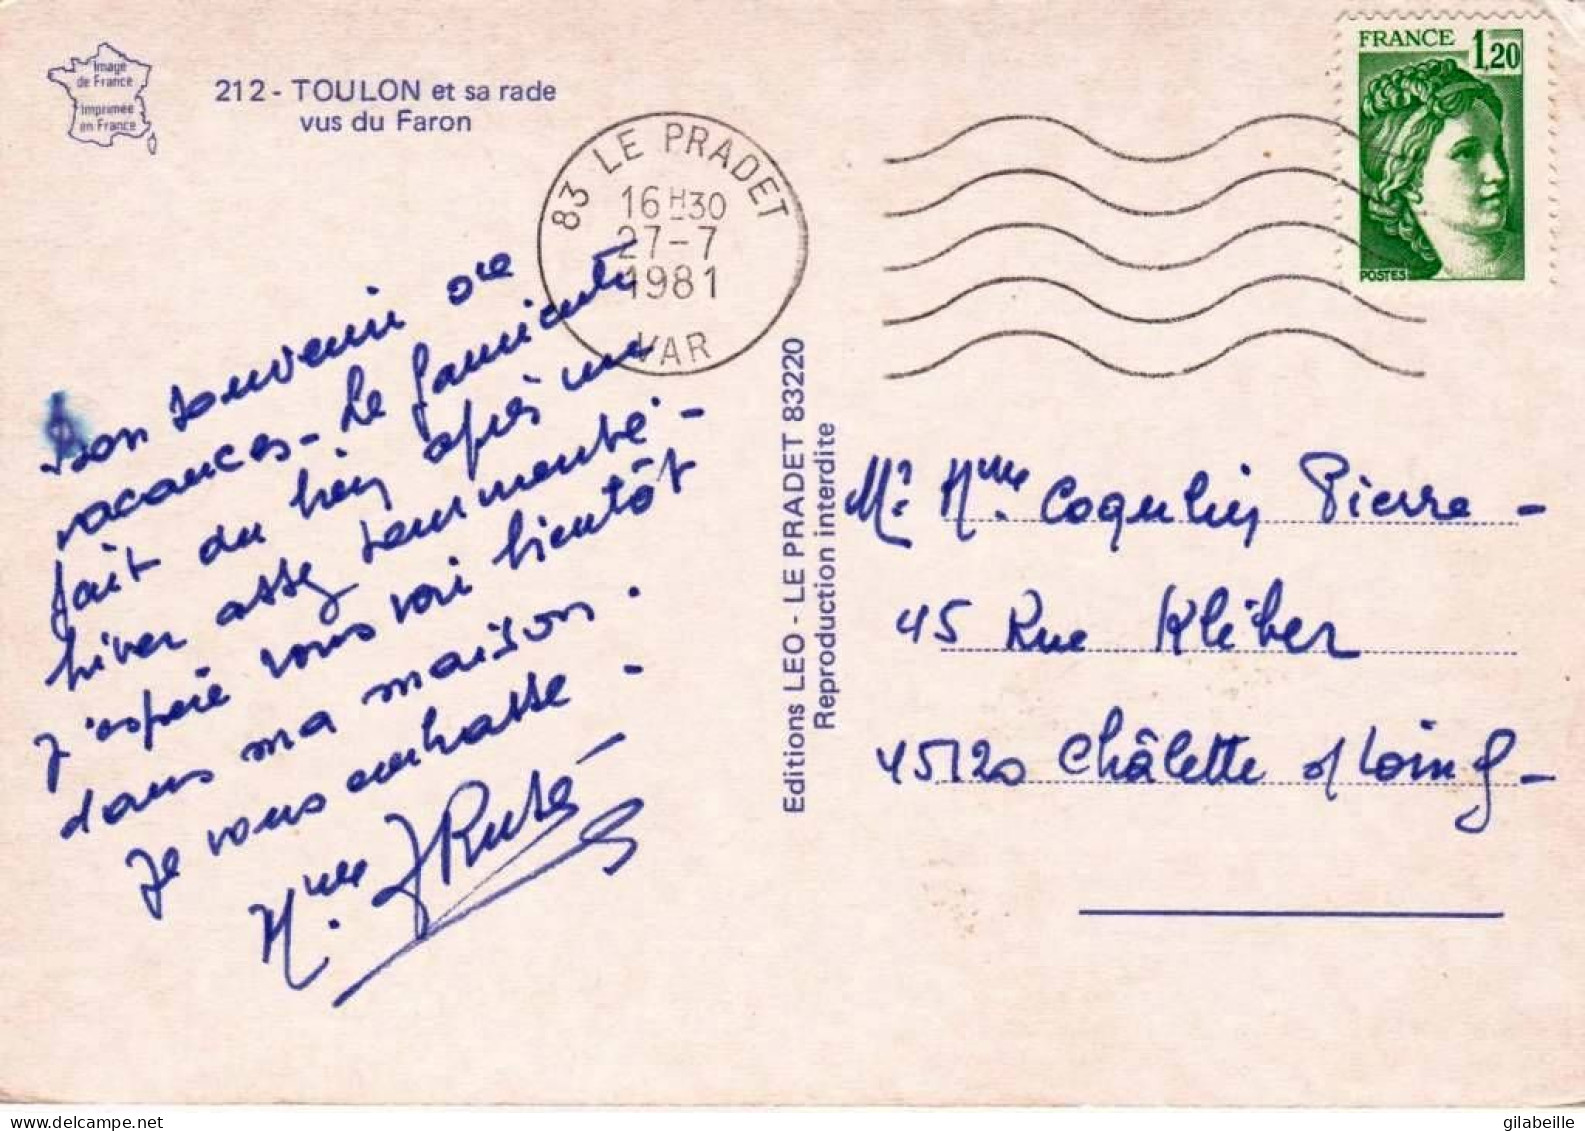 Image
de France
Imprimée
en France
212 - TOULON et sa rade
vus du Faron
83 LE PRADET
16H30
27-7
1981
VAR
FRANCE 1,20
POSTES
Bon souvenir de
vacances - Le farniente
fait du bien après un
hiver assez tourmenté -
J'espère vous voir bientôt
dans ma maison.
Je vous embrasse -
Mme
Editions LEO - LE PRADET 83220
Reproduction interdite
Mr. Mme. Coquelin Pierre -
45 Rue Kléber
45120 Châlette s/ Loing -
gilabeille